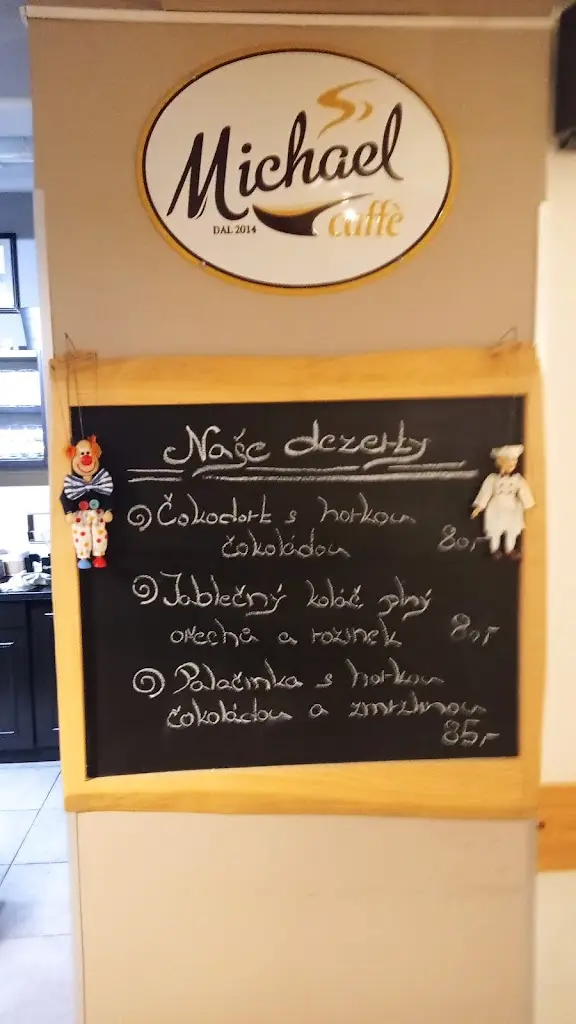 Michael
caffè
DAL 2014
Naše dezerty
Čokodort s horkou
čokoládou 80,-
Jablečný koláč plný
ořechů a rozinek 80,-
Palačinka s horkou
čokoládou a zmrzlinou
85,-